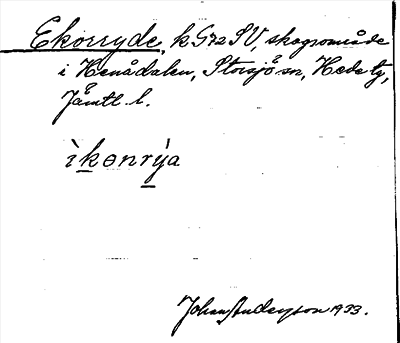 Ekorryde, k G72 SV, skogsområde
i Henådalen, Storsjö sn, Hede tg,
Jämtl. l.
ìkɵnrýa
Johan Anderson 1933.